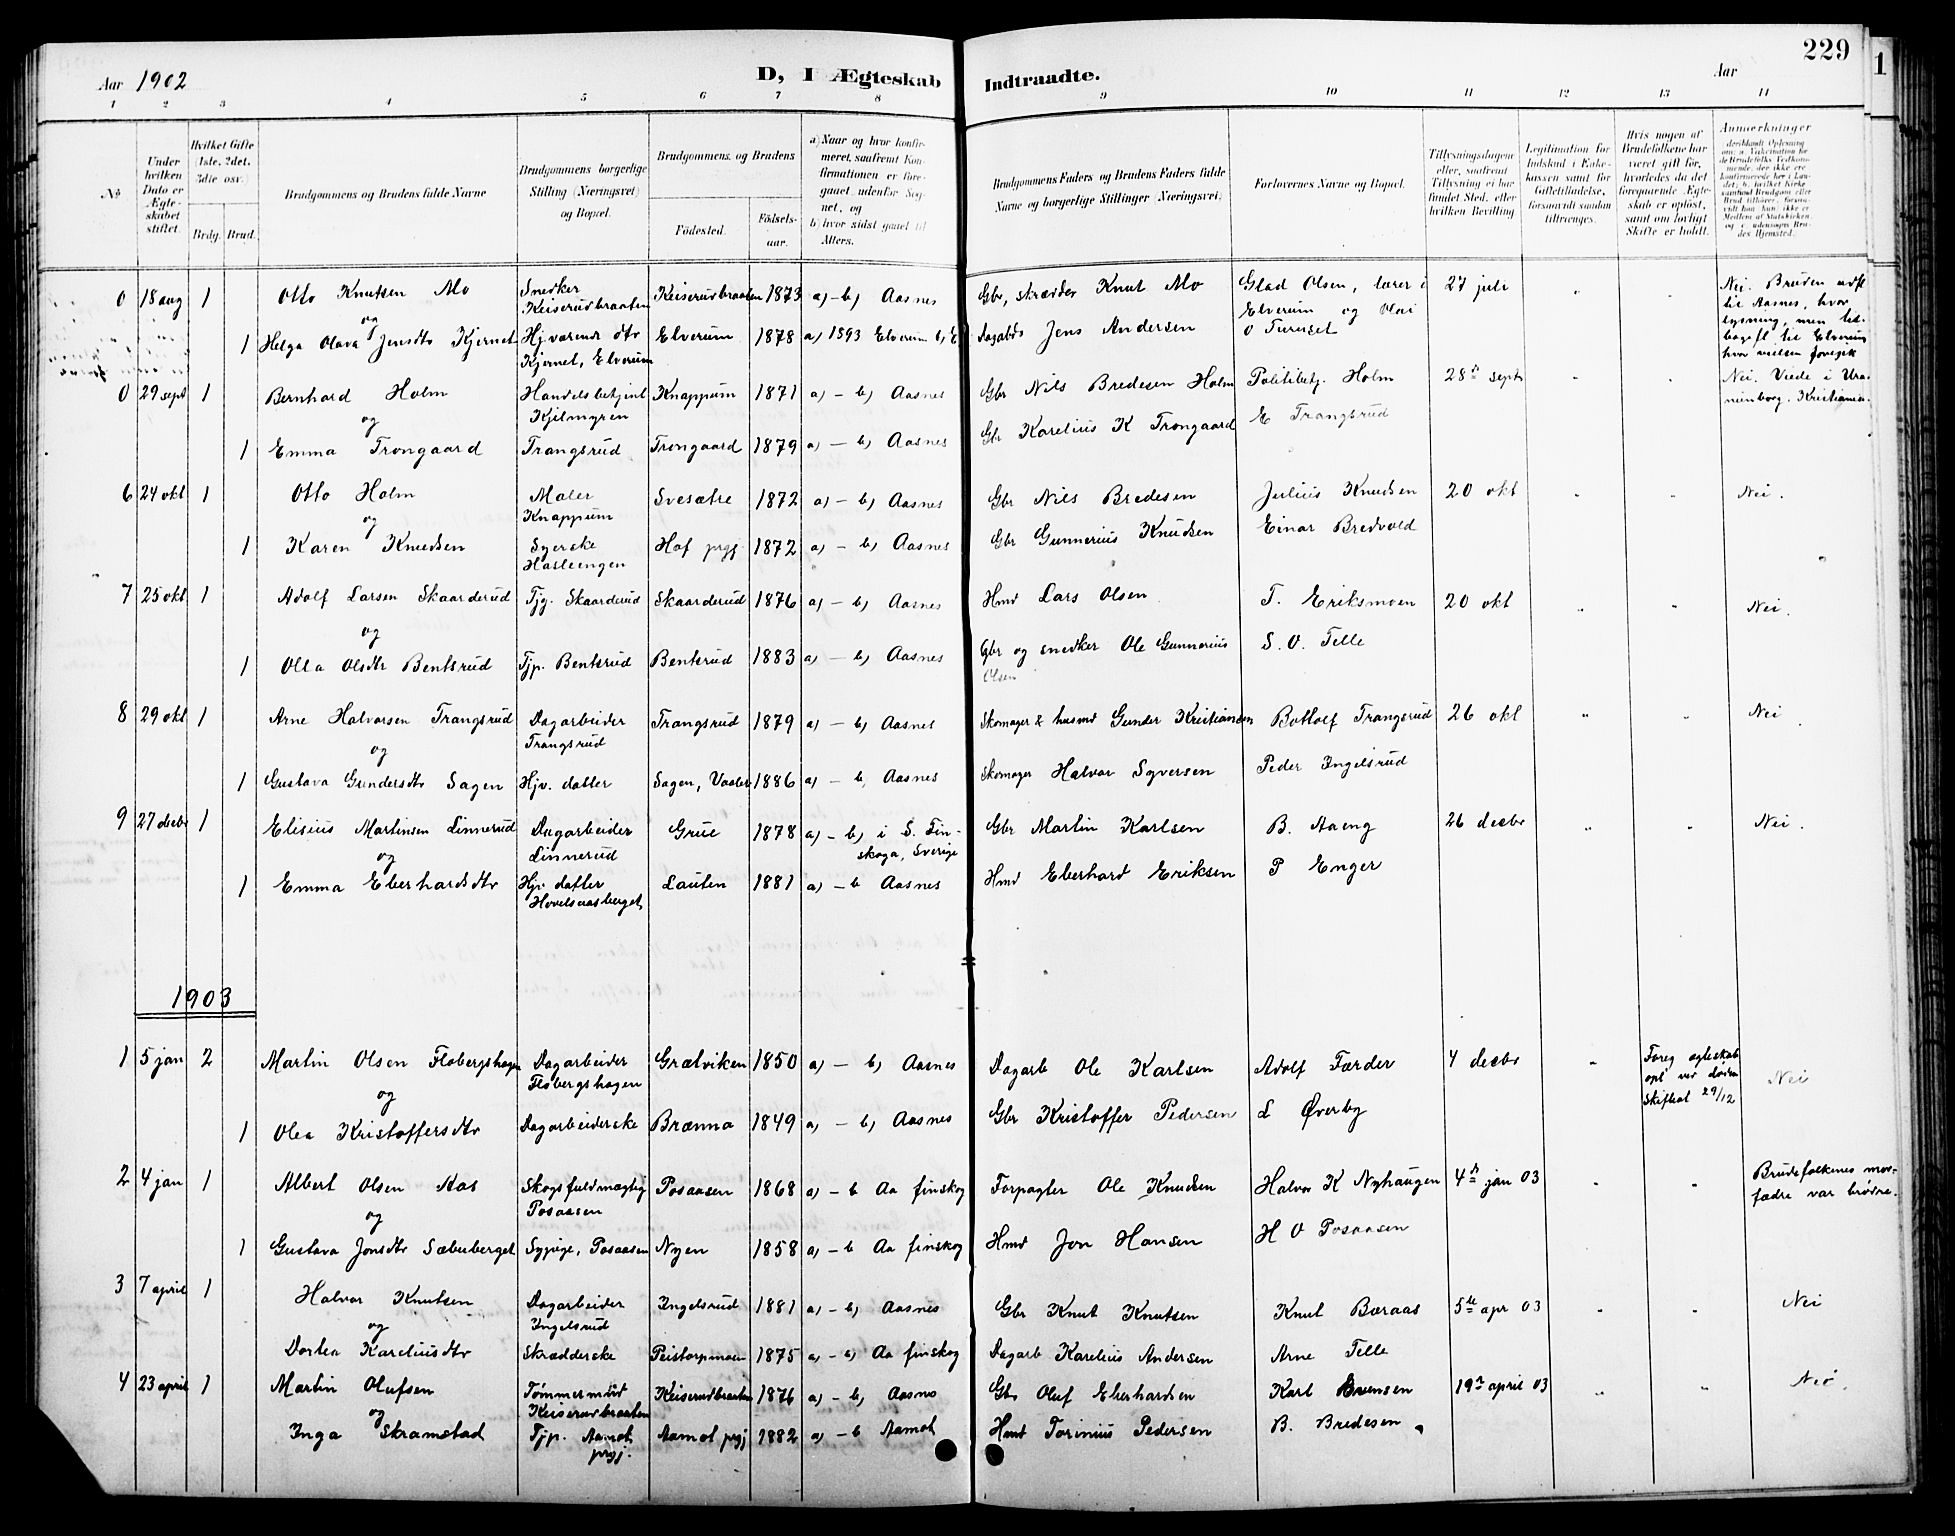 Aar 1902
D, I Ægteskab Indtraadte.
Aar
229
1
1 2 3 4 5 6 7 8 9 10 11 12 13 14
No
Under hvilken Dato er Ægteskabet stiftet.
Hvilket Gifte (1ste, 2det, 3die osv.)
Brdg. Brud.
Brudgommens og Brudens fulde Navne
Brudgommens borgerlige Stilling (Næringsvei) og Bopæl.
Brudgommens og Brudens
Fødested.
Fødselsaar.
a) Naar og hvor konfirmeret, saafremt Konfirmationen er foregaaet udenfor Sognet, og
b) hvor sidst gaaet til Alters.
Brudgommens Faders og Brudens Faders fulde Navne og borgerlige Stillinger (Næringsvei)
Forlovernes Navne og Bopæl.
Tillysningsdagene eller, saafremt Tillysning ei har fundet Sted, efter hvilken Bevilling
Legitimation for Indskud i Enkekassen samt for Giftetilladelse, forsaavidt saadan tiltrænges.
Hvis nogen af Brudefolkene har været gift før, hvorledes da det foregaaende Ægteskab er opløst, samt om lovligt Skifte er holdt.
Anmærkninger
0 18 aug 1 Otto Knutsen Mo Snedker Keiserudbraaten Keiserudbraaten 1873 a) – b) Aasnes Gbr, skrædder Knut Mo Glad Olsen, lærer i Elverum og Olai O Turuset 27 juli " " Nei. Bruden udfl til Aasnes, hvor lysning, men tilbagefl til Elverum hvor vielsen foregik
og
1 Helga Olava Jensdtr Kjernet Hjværende dtr Kjernet, Elverum Elverum 1878 a) 1893 Elverum b) E Dagabds Jens Andersen
0 29 sept 1 Bernhard Holm Handelsbetjent Kjilmyren Knappum 1871 a) – b) Aasnes Gbr Nils Bredesen Holm Politibetj. Holm 28de sept " " Nei. Viede i Uranienborg. Kristiania.
og
1 Emma Trongaard Trangsrud Trongaard 1879 a) – b) Aasnes Gbr Karelius K Trongaard E Trangsrud
6 24 okt 1 Otto Holm Maler Knappum Svesætre 1872 a) – b) Aasnes Gbr Nils Bredesen Julius Knudsen 20 okt " " Nei.
og
1 Karen Knudsen Syerske Hasleengen Hof prgj 1872 a) – b) Aasnes Gbr Gunnerius Knudsen Einar Bredvold
7 25 okt 1 Adolf Larsen Skaarderud Tjg. Skaarderud Skaarderud 1876 a) – b) Aasnes Hmd Lars Olsen T. Eriksmoen 20 okt " " Nei.
og
1 Olea Olsdtr Bentsrud Tjp. Bentsrud Bentsrud 1883 a) – b) Aasnes Gbr og snedker Ole Gunnerius Olsen S. O. Telle
8 29 okt 1 Arne Halvorsen Trangsrud Dagarbeider Trangsrud Trangsrud 1879 a) – b) Aasnes Skomager & husmd Gunder Kristiansen Bottolf Trangsrud 26 okt " " Nei
og
1 Gustava Gundersdtr Sagen Hjv. datter Sagen, Vaaler 1886 a) – b, Aasnes Skomager Halvor Syversen Peder Ingelsrud
9 27 decbr 1 Elisius Martinsen Linnerud Dagarbeider Linnerud Grue 1878 a) – b) i S. Finskoga, Sverige Gbr Martin Karlsen B. Aaeng 26 decbr " " Nei.
og
1 Emma Eberhardsdtr Hjv datter Hovelsaasberget Lauten 1881 a) – b Aasnes Hmd Eberhard Eriksen P Enger
1903
1 5 jan 2 Martin Olsen Flobergshagen Dagarbeider Flobergshagen Grætviken 1850 a) – b) Aasnes Dagarb Ole Karlsen Adolf Færder 4 decbr " Foreg ægteskab opl ved døden Skifteat 29/12 Nei
og
1 Olea Kristoffersdtr Dagarbeiderske Brænna 1849 a) – b) Aasnes Gbr Kristoffer Pedersen L Øverby
2 4 jan 1 Albert Olsen Aas Skogsfuldmægtig Posaasen Posaasen 1868 a) – b Aa finskog Forpagter Ole Knudsen Halvor K Nyhaugen 4de jan 03 " " Brudefolkenes morfædre var brødre.
og
1 Gustava Jonsdtr Sæbuberget Sypige, Posaasen Nyen 1858 a) – b Aa finskog Hmd Jon Hansen H O Posaasen
3 7 april 1 Halvor Knutsen Dagarbeider Ingelsrud Ingelsrud 1881 a) – b) Aasnes Gbr Knut Knutsen Knut Baraas 5te apr 03 " " Nei
og
Dortea Kareliusdtr Skrædderske Peistorpmoen 1875 a) – b) Aa finskog Dagarb Karelius Andersen Arne Telle
4 23 april 1 Martin Olufsen Tømmermand Keiserudbraaten Keiserudbraaten 1876 a) – b) Aasnes Gbr Oluf Eberhardsen Karl Evensen 19de april 03 " " Nei.
og
Inga Skramstad Tjp. Aamot prgj. Aamot prgj 1882 a) – b Aamot Hmd Torinius Pedersen B. Bredesen